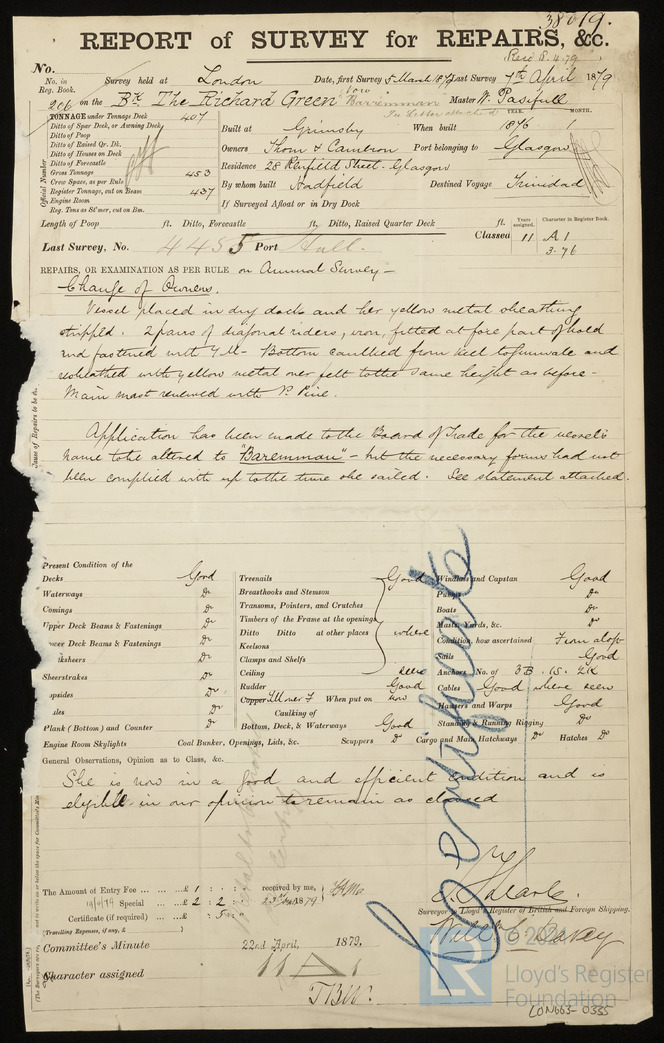 38019.
REPORT of SURVEY for REPAIRS, &c.
Recd 8.4.79
No.
No. in Reg. Book. Survey held at London Date, first Survey 5 March 1879 Last Survey 7th April 1879
206 on the Bk The Richard Green now Baremman Master W. Pasifull
In Letter attached
TONNAGE under Tonnage Deck 407
Ditto of Spar Deck, or Awning Deck
Ditto of Poop
Ditto of Raised Qr. Dk.
Ditto of Houses on Deck
Ditto of Forecastle
Gross Tonnage 453
Crew Space, as per Rule
Register Tonnage, cut on Beam 437
Engine Room
Reg. Tons as St'mer, cut on Bm.
Official Number
YEAR. MONTH.
Built at Grimsby When built 1876
Owners Thom & Cameron Port belonging to Glasgow
Residence 28 Renfield Street - Glasgow
By whom built Hadfield Destined Voyage Trinidad
If Surveyed Afloat or in Dry Dock
Length of Poop ft. Ditto, Forecastle ft. Ditto, Raised Quarter Deck ft.
Years assigned. Character in Register Book.
Last Survey, No. 4455 Port Hull. Classed 11 A1
3-76
REPAIRS, OR EXAMINATION AS PER RULE on Annual Survey -
Change of Owners.
Vessel placed in dry dock and her yellow metal sheathing
stripped. 2 pairs of diagonal riders, iron, fitted at fore part of hold
and fastened with Y M - Bottom caulked from keel to gunwale and
resheathed with yellow metal over felt to the same height as before -
Main mast renewed with P. Pine.
Application has been made to the Board of Trade for the vessel's
name to be altered to "Baremman" - but the necessary forms had not
been complied with up to the time she sailed. See statement attached.
Cause of Repairs to be
Present Condition of the
Decks Good
Waterways Do
Comings Do
Upper Deck Beams & Fastenings Do
Lower Deck Beams & Fastenings Do
ksheers Do
Sheerstrakes Do
opsides Do
Plank (Bottom) and Counter Do
Engine Room Skylights
Treenails Good
Breasthooks and Stemson
Transoms, Pointers, and Crutches
Timbers of the Frame at the openings
Ditto Ditto at other places where
Keelsons
Clamps and Shelfs
Ceiling seen
Rudder Good
Copper YM over F When put on now
Caulking of
Bottom, Deck, & Waterways Good
Coal Bunker, Openings, Lids, &c. Scuppers Do
Windlass and Capstan Good
Pumps Do
Boats Do
Masts, Yards, &c. Do
Condition, how ascertained From aloft
Sails Good
Anchors No. of 3B. 1S. 2K
Cables Good where seen
Hawsers and Warps Good
Standing & Running Rigging Do
Cargo and Main Hatchways Do Hatches Do
General Observations, Opinion as to Class, &c.
She is now in a good and efficient condition and is
eligible in our opinion to remain as classed
Certificate
The Amount of Entry Fee £ 1 : : received by me,
Special £ 2 : 2 : 1879
Certificate (if required) £ : 5 :
(Travelling Expenses, if any, £ )
Surveyor to Lloyd's Register of British and Foreign Shipping.
Will. C. Davey
Committee's Minute 22nd April, 1879.
Character assigned
LR
© 2021
Lloyd's Register
Foundation
LON663-0355